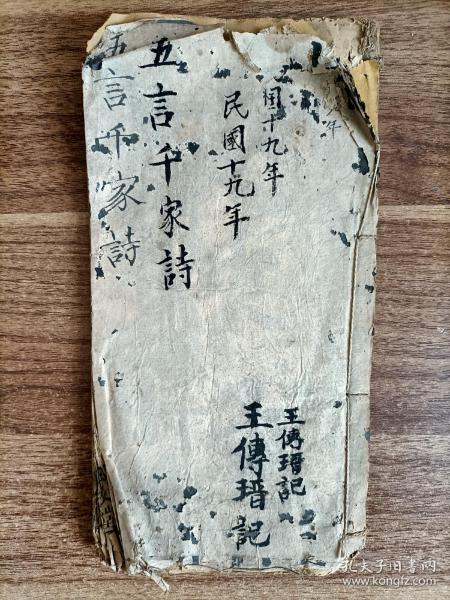 年
國十九年
民國十九年
五言千家詩
五言千家詩
王傳瑨記
王傳瑨記
孔夫子旧书网
www.kongfz.com